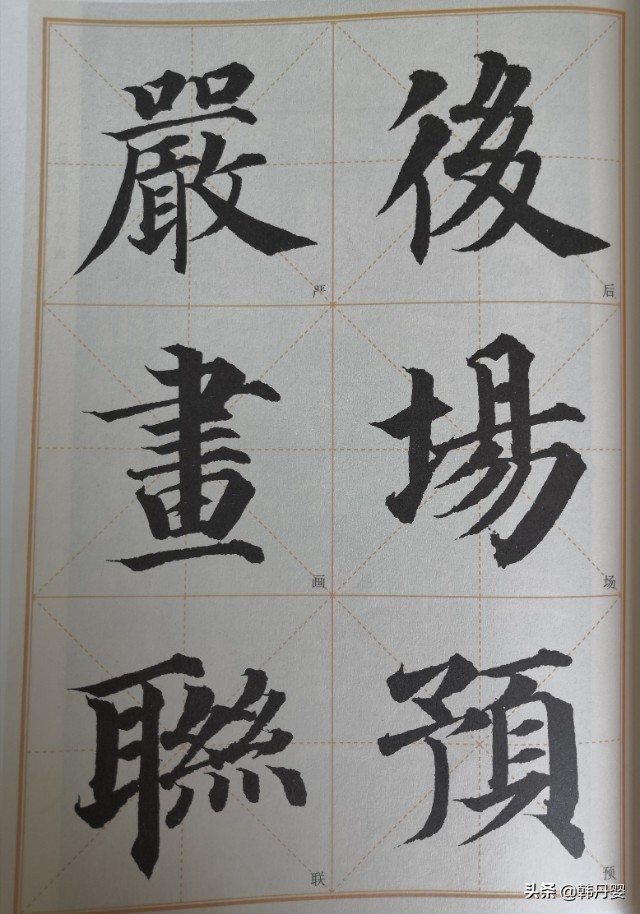 後
后
場
场
預
预
嚴
严
畫
画
聯
联
头条 @韩丹婴